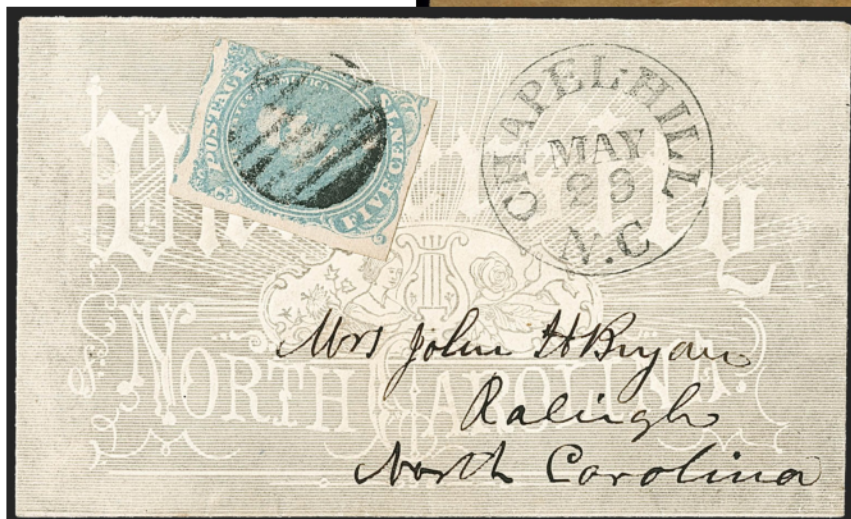 POSTAGE
AMERICA
FIVE CENTS
CHAPEL HILL
MAY
28
N.C
of NORTH CAROLINA.
Mrs John H Bryan
Raleigh
North Carolina